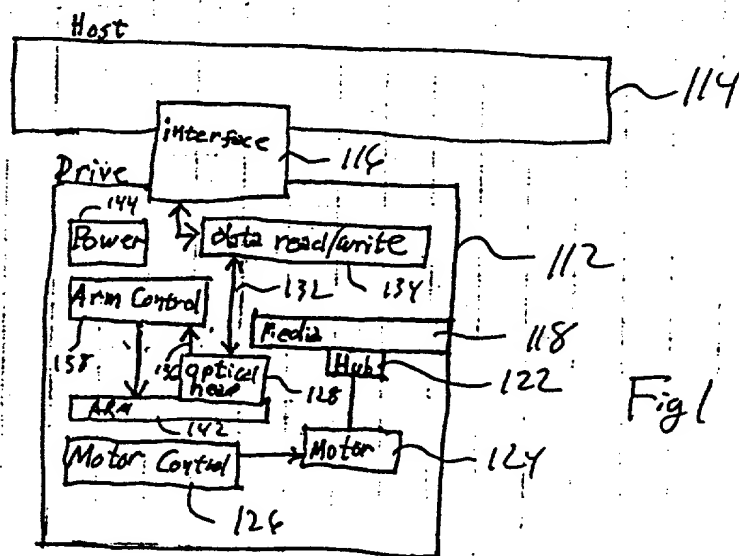 Host
114
interface
116
Drive
144
Power
data read/write
112
132
134
Arm Control
Media
118
138
136
optical
head
Hub
122
128
ARM
142
Fig 1
Motor Control
Motor
124
126